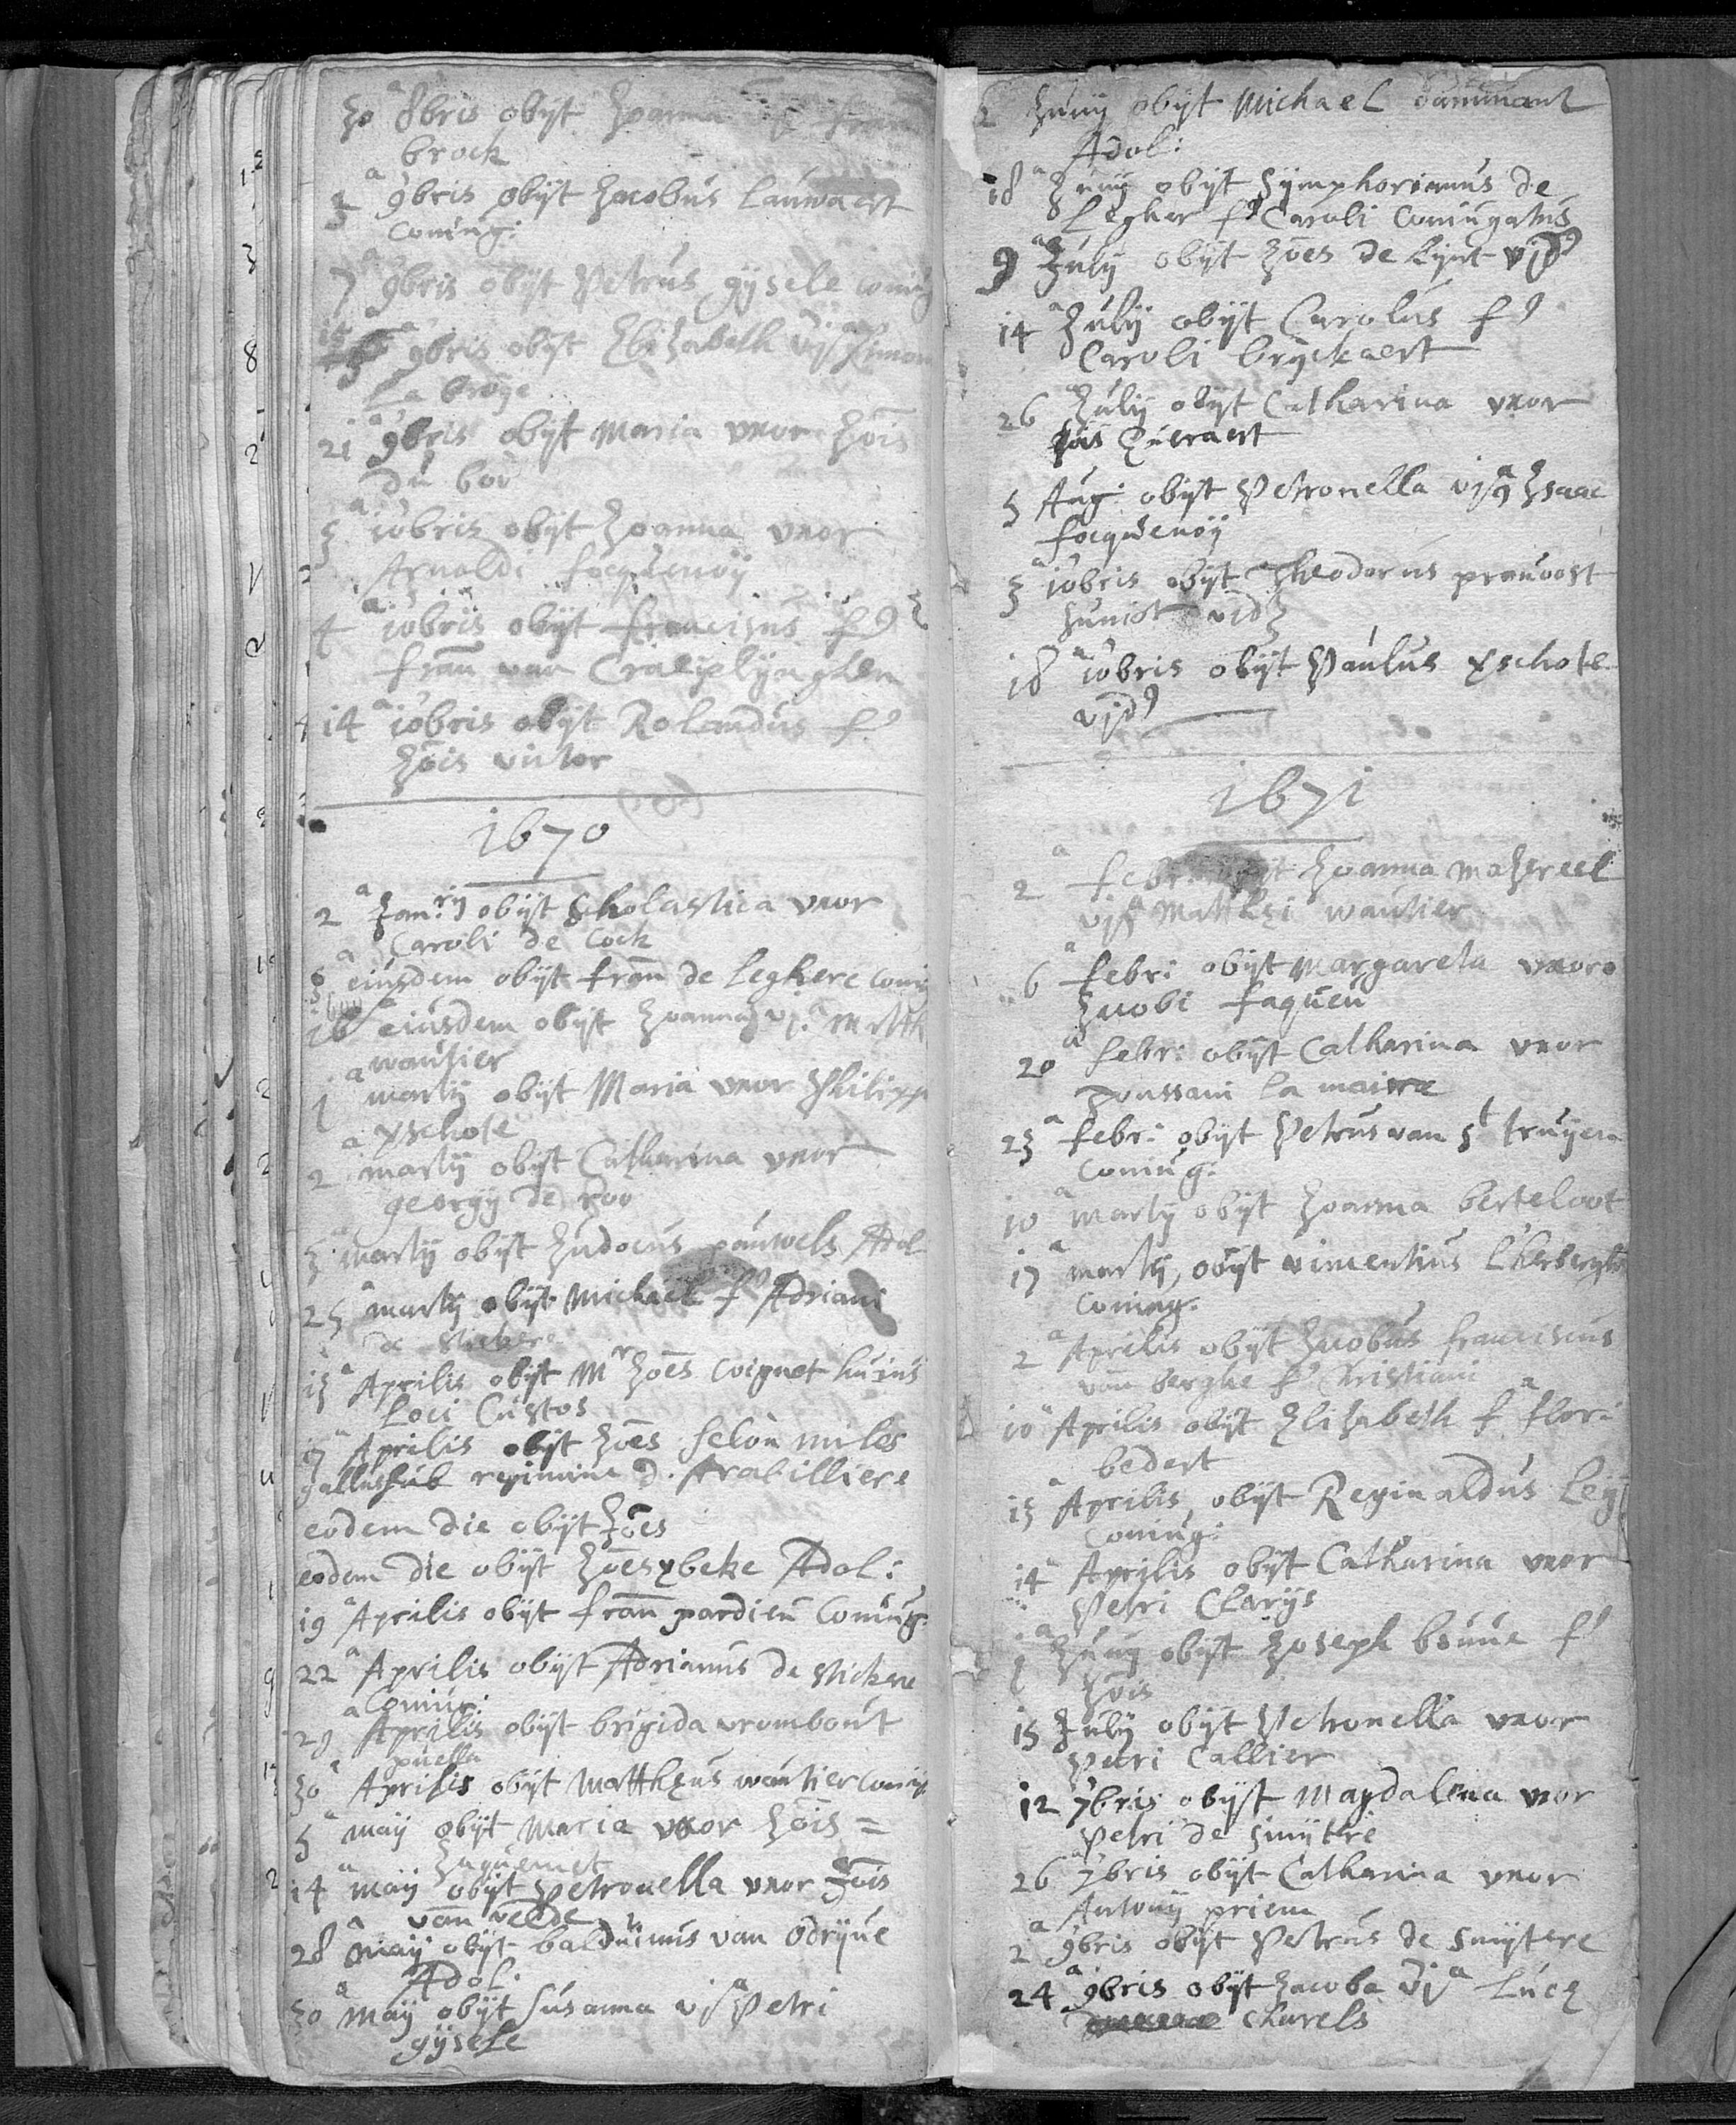 30 a 8bris obijt Joanna
brock
3 a 9bris obijt Jacobus Lauwaert
Coniug:
7 a 9bris obijt Petrus gijsele coniug
9bris obijt Elizabeth vid a Simon
La broye
21 a 9bris obijt Maria uxor Jois
du bou
3 a iobris obijt Joanna uxor
Arnaldi focquenoij
4 a iobris obijt franciscus f9
fran van Craeiplijnghen
14 a iobris obijt Rolandus f9
Jois victor
1670
2 a Jan:rij obijt Scholastica uxor
Caroli de Cock
8 a eiusdem obijt fran de Leghere coniug
16 a eiusdem obijt Joanna vi a Matth
wautier
1 a martij obijt Maria uxor Philipp
xschote
2 a martij obijt Catharina uxor
georgij de roo
3 a martij obijt Judocus pauwels Adol
25 a martij obijt Michael f9 Adriani
de stickere
13 a Aprilis obijt Mr Joes coignet huius
Loci Custos
17 a Aprilis obijt Joes felon miles
gallus sub regimine d. Arabilliers
eodem die obijt Joes
eodem die obijt Joes xbeke Adol:
19 a Aprilis obijt fran pardieu Coniug:
22 a Aprilis obijt Adrianus de stickere
Coniug:
29 a Aprilis obijt brigida vrombout
puella
30 a Aprilis obijt Mattheus wautier coniug
5 a maij obijt Maria uxor Jois =
Jaquemet
14 a maij obijt Petronella uxor Jois
van velde
28 a maij obijt balduinus van Odrijue
Adol.
30 a maij obijt Susanna vid a Petri
gijsele
2 Junij obijt Michael dammant
Adol:
18 a Junij obijt Symphorianus de
Legher f9 Caroli Coniugatus
9 a Julij obijt Joes de Lijnt vid9
14 a Julij obijt Carolus f9
Caroli bryckaert
26 a Julij obijt Catharina uxor
Jois Queraert
5 Aug: obijt Petronella vid a Isaac
focquenoij
3 a iobris obijt Theodorus prouvost
Junior vid9
18 a iobris obijt Paulus xschote
vid9
1671
2 a febr: obijt Joanna mahreel
vid a Matthei wautier
6 a febri obijt Margareta uxor
Jacobi faqueu
20 a febr: obijt Catharina uxor
Toussani la maire
23 a febr: obijt Petrus van St truijen
Coniug:
10 a Martij obijt Joanna berteloot
17 a martij, obijt vincentius L'herberghe
Coniug.
2 a Aprilis obijt Jacobus franciscus
van berghe f9 Christiani
10 a Aprilis obijt Elizabeth f a flori
bedert
13 a Aprilis obijt Reginaldus Leij
Coniug:
14 a Aprilis obijt Catharina uxor
Petri Clarijs
1 a Junij obijt Joseph bonue f9
Jois
15 Julij obijt Petronella uxor
Petri Callier
12 7bris obijt Magdalena uxor
Petri de smijtre
26 a 7bris obijt Catharina uxor
Antonij priem
2 a 9bris obijt Petrus de smijtere
24 a 9bris obijt Jacoba vid a Lucę
charels